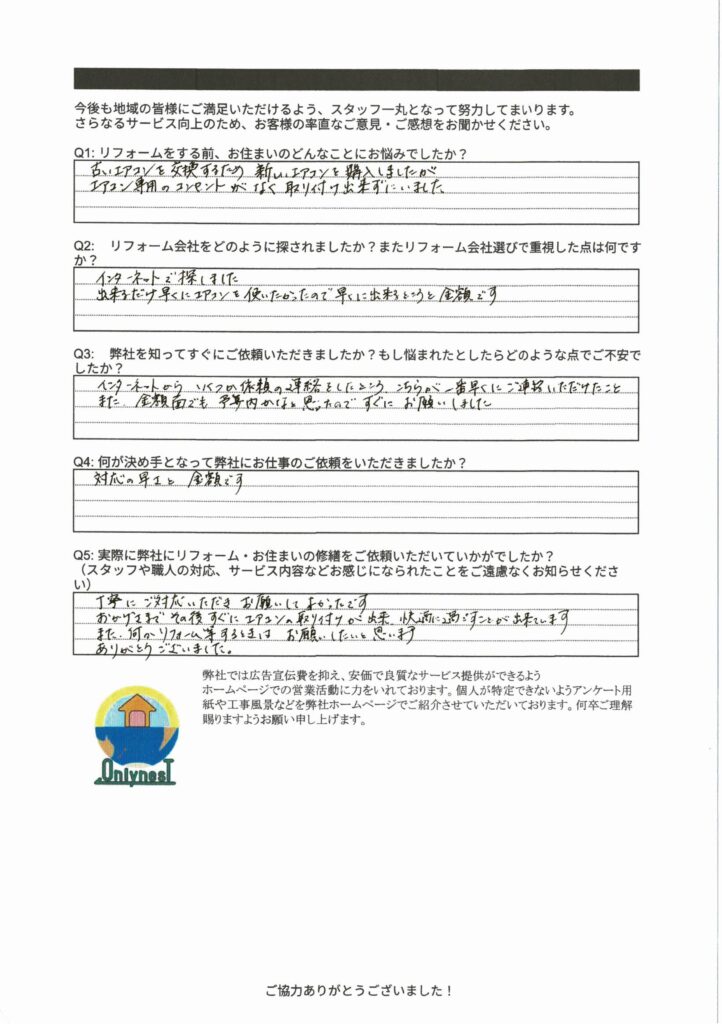 今後も地域の皆様にご満足いただけるよう、スタッフ一丸となって努力してまいります。
さらなるサービス向上のため、お客様の率直なご意見・ご感想をお聞かせください。
Q1: リフォームをする前、お住まいのどんなことにお悩みでしたか？
古いエアコンを交換するため 新しいエアコンを購入しましたが
エアコン専用のコンセントがなく取り付け出来ずにいました
Q2: リフォーム会社をどのように探されましたか？またリフォーム会社選びで重視した点は何です
か？
インターネットで探しました
出来るだけ早くにエアコンを使いたかったので早くに出来るところと金額です
Q3: 弊社を知ってすぐにご依頼いただきましたか？もし悩まれたとしたらどのような点でご不安で
したか？
インターネットから いくつか依頼の連絡をしたところ こちらが一番早くにご連絡いただけたこと
また、金額面でも 予算内かなと思ったので すぐに お願いしました
Q4: 何が決め手となって弊社にお仕事のご依頼をいただきましたか？
対応の早さと 金額です
Q5: 実際に弊社にリフォーム・お住まいの修繕をご依頼いただいていかがでしたか？
（スタッフや職人の対応、サービス内容などお感じになられたことをご遠慮なくお知らせくださ
い）
丁寧に ご対応いただき お願いして よかったです
おかげさまで その後 すぐに エアコンの取り付けが出来、快適に過ごすことが出来ています
また、何かリフォーム等するときは お願いしたいと思います
ありがとうございました。
弊社では広告宣伝費を抑え、安価で良質なサービス提供ができるよう
ホームページでの営業活動に力をいれております。個人が特定できないようアンケート用
紙や工事風景などを弊社ホームページでご紹介させていただいております。何卒ご理解
賜りますようお願い申し上げます。
OnlynesT
ご協力ありがとうございました！